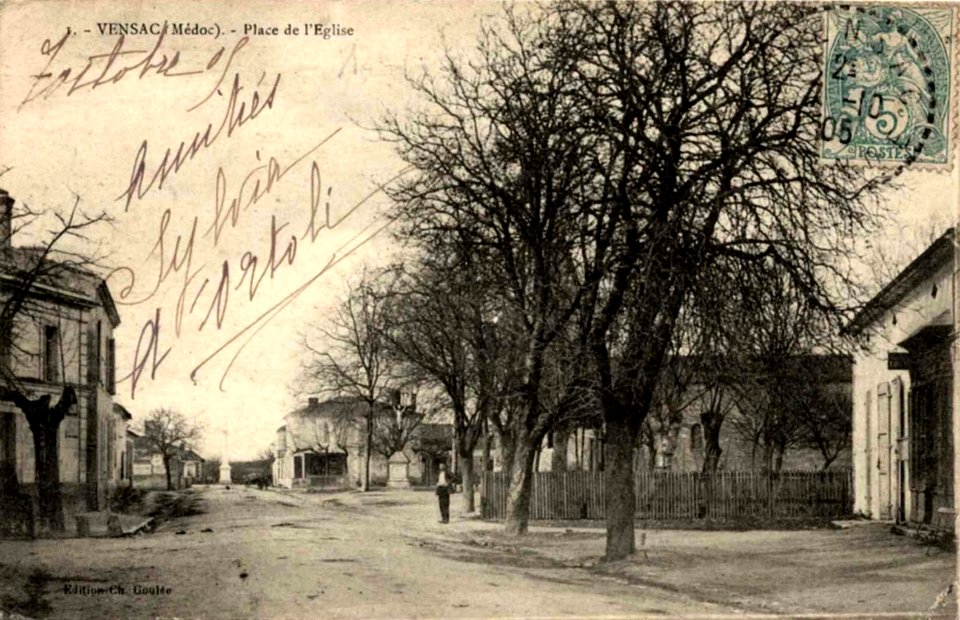 1. - VENSAC (Médoc). - Place de l'Eglise
7 octobre 05
Amitiés
Sylvia
d'Ortoli
2
10
05
5c
POSTES
Edition Ch. Goulée